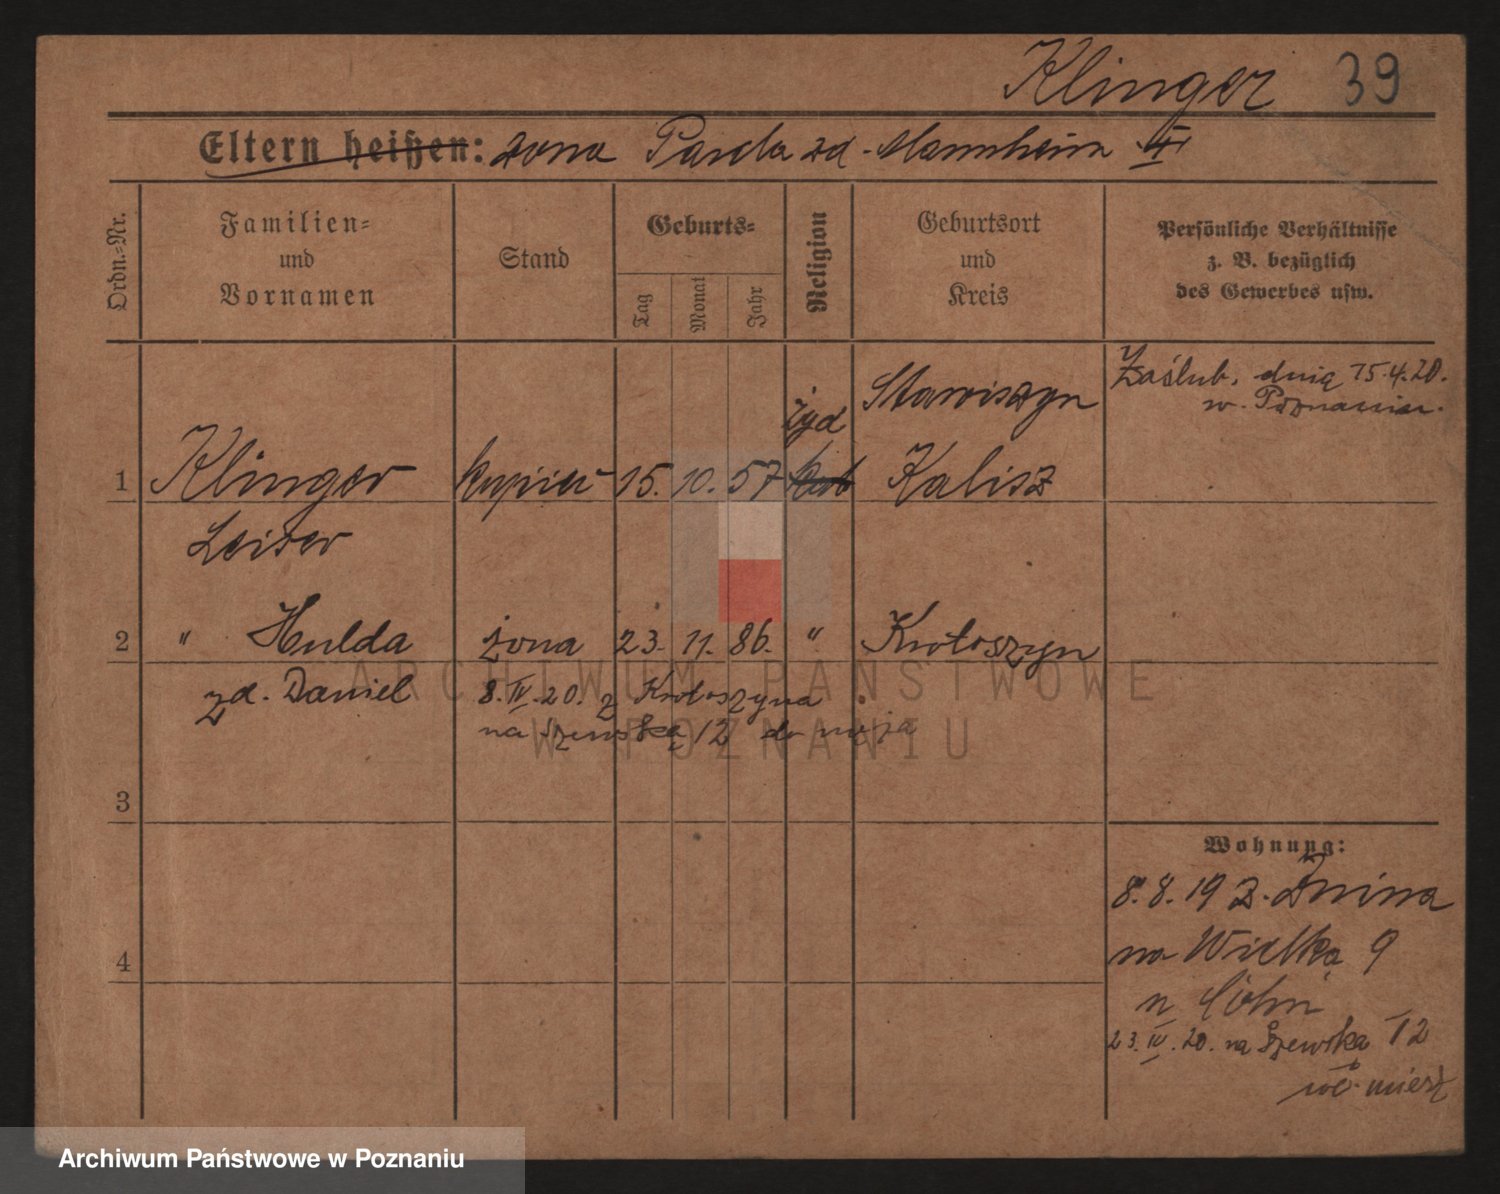 Klinger 39
Eltern heißen: żona Parda zd. Mannheim II
Ordn.-Nr.
Familien-
und
Vornamen
Stand
Geburts-
Tag
Monat
Jahr
Religion
Geburtsort
und
Kreis
Persönliche Verhältnisse
z. B. bezüglich
des Gewerbes usw.
Zaślub. dnia 15.4.20.
w. Poznaniu.
żyd Stawiszyn
1 Klinger kupiec 15. 10. 57 Kalisz
Leiser
2 " Hulda żona 23. 11. 86. " Krotoszyn
zd. Daniel 8.IV.20. z Krotoszyna
na Szewską 12 do męża
3
Wohnung:
8.8.19 z. Żnina
na Wielką 9
4
23.IV.20. na Szewską 12
wł. miesz
ARCHIWUM PAŃSTWOWE
W POZNANIU
Archiwum Państwowe w Poznaniu